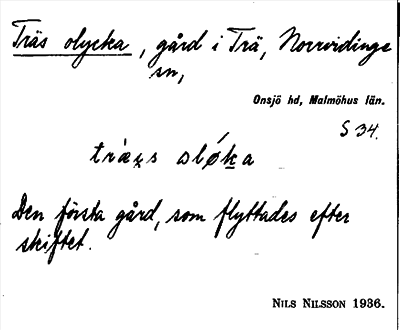 Träs olycka, gård i Trä, Norrvidinge
sn,
Onsjö hd, Malmöhus län.
S 34.
Den första gård, som flyttades efter
skiftet.
NILS NILSSON 1936.